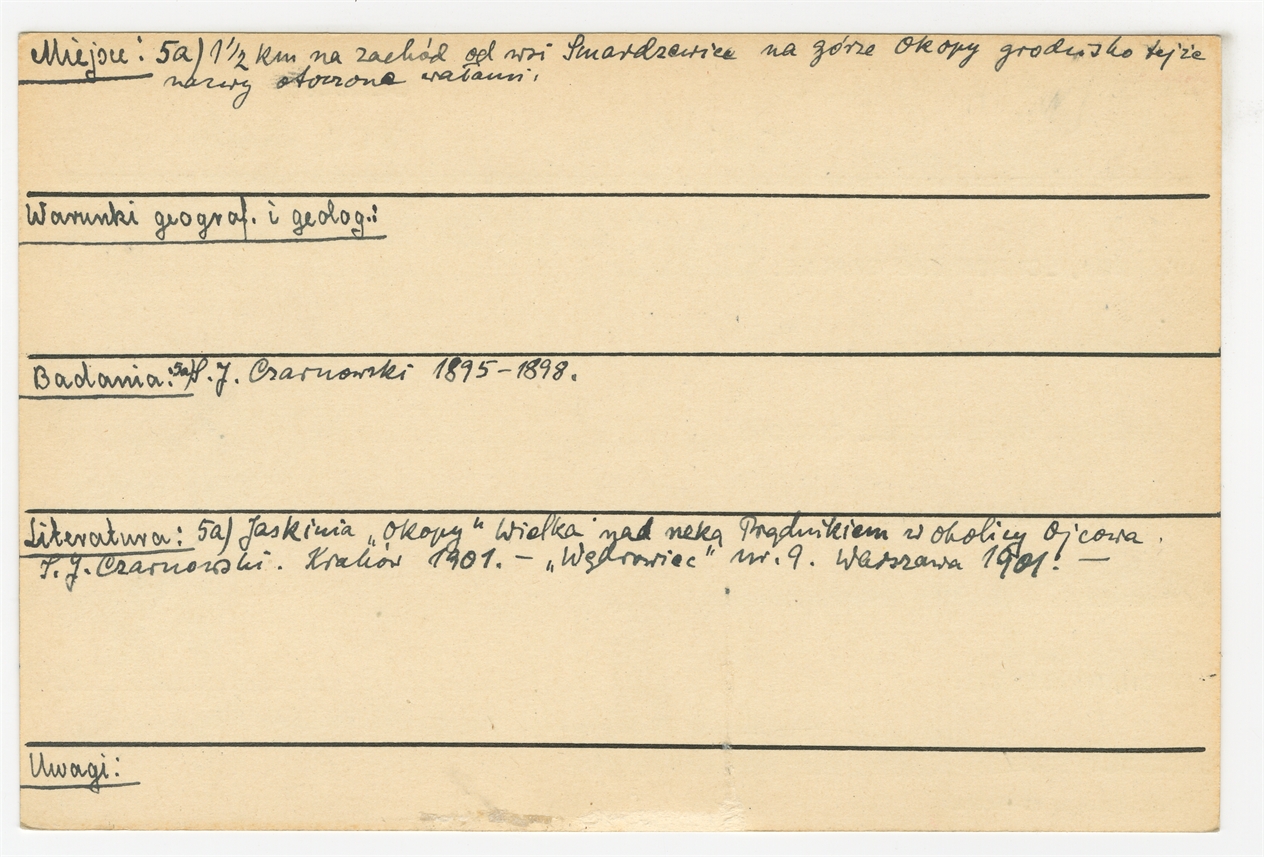 Miejsce: 5a) 1½ km na zachód od wsi Smardzewice na górze Okopy grodzisko tejże
nazwy otoczone wałami.
Warunki geograf. i geolog.:
Badania: 5a) S. J. Czarnowski 1895-1898.
Literatura: 5a) Jaskinia „Okopy" Wielka nad rzeką Prądnikiem w okolicy Ojcowa.
S. J. Czarnowski. Kraków 1901. — „Wędrowiec" nr. 9. Warszawa 1901. —
Uwagi: